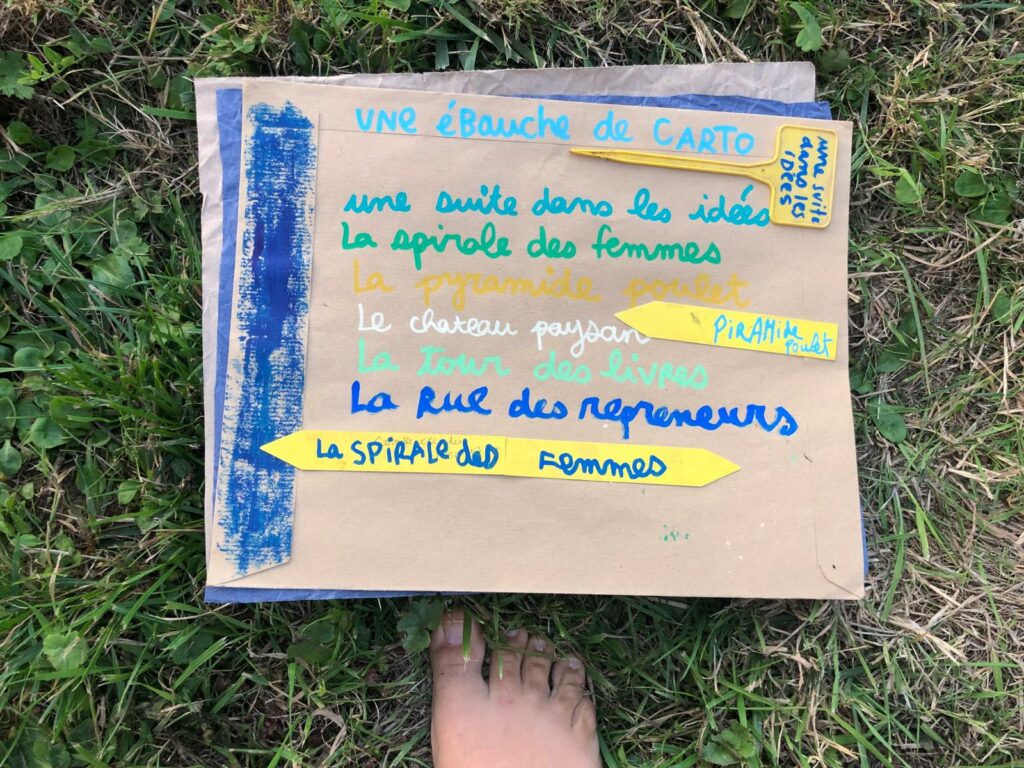 UNE éBauche de CARTO
une suite
dans les
iDées
une suite dans les idées
La spirale des femmes
La pyramide poulet
Le chateau paysan
PiRAMide
Poulet
La tour des livres
La Rue des repreneurs
La SPIRALE des Femmes